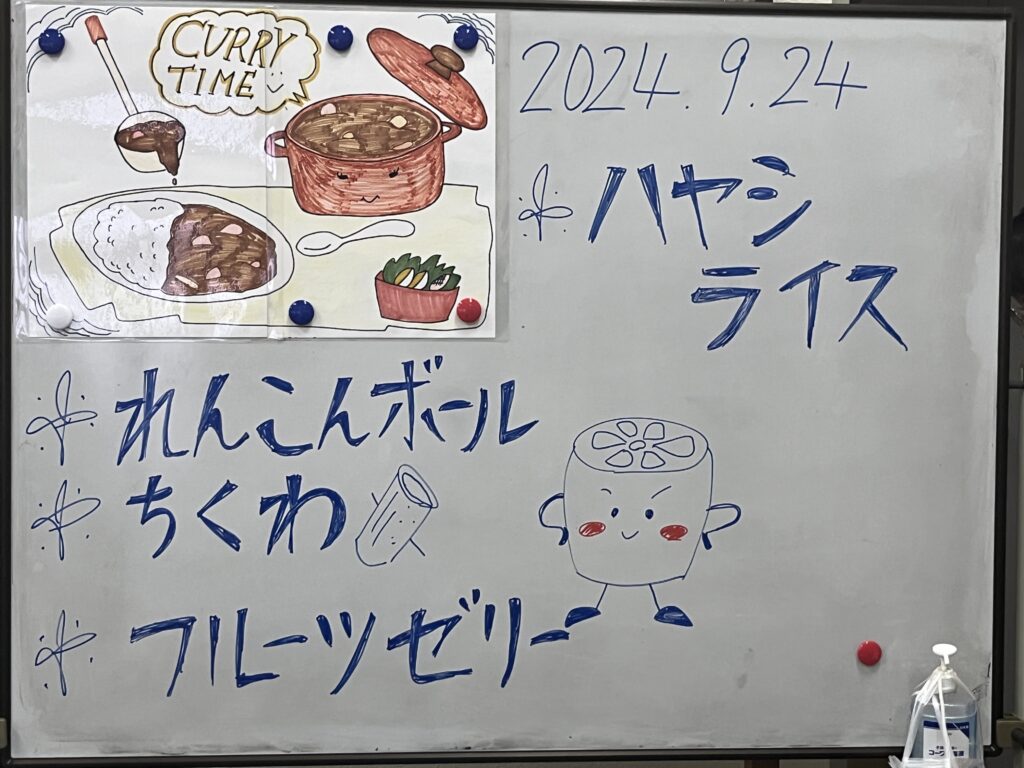 CURRY
TIME
2024.9.24
ハヤシ
ライス
れんこんボール
ちくわ
フルーツゼリー